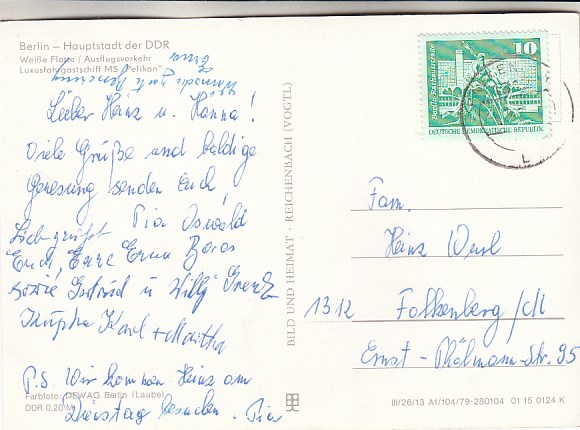 Berlin – Hauptstadt der DDR
Weiße Flotte / Ausflugsverkehr
Luxusfahrgastschiff MS "Pelikan"
Lieber Heinz u. Hanna!
Viele Grüße und baldige
Genesung senden Euch
Pia Oswald
Lieb grüßt
Euch, Eure Erna
sowie Gertrud u Willy
Karl + Martha
P.S. Wir kommen Heinz am
Dienstag besuchen. Pia
Farbfoto: DEWAG Berlin (Laube)
DDR 0,20 M
BILD UND HEIMAT · REICHENBACH (VOGTL)
10
Berlin, Rathausstraße
DEUTSCHE DEMOKRATISCHE REPUBLIK
Fam.
Heinz
1312 Falkenberg /M
Ernst-Thälmann-Str. 95
III/26/13 A1/104/79-280104 01 15 0124 K